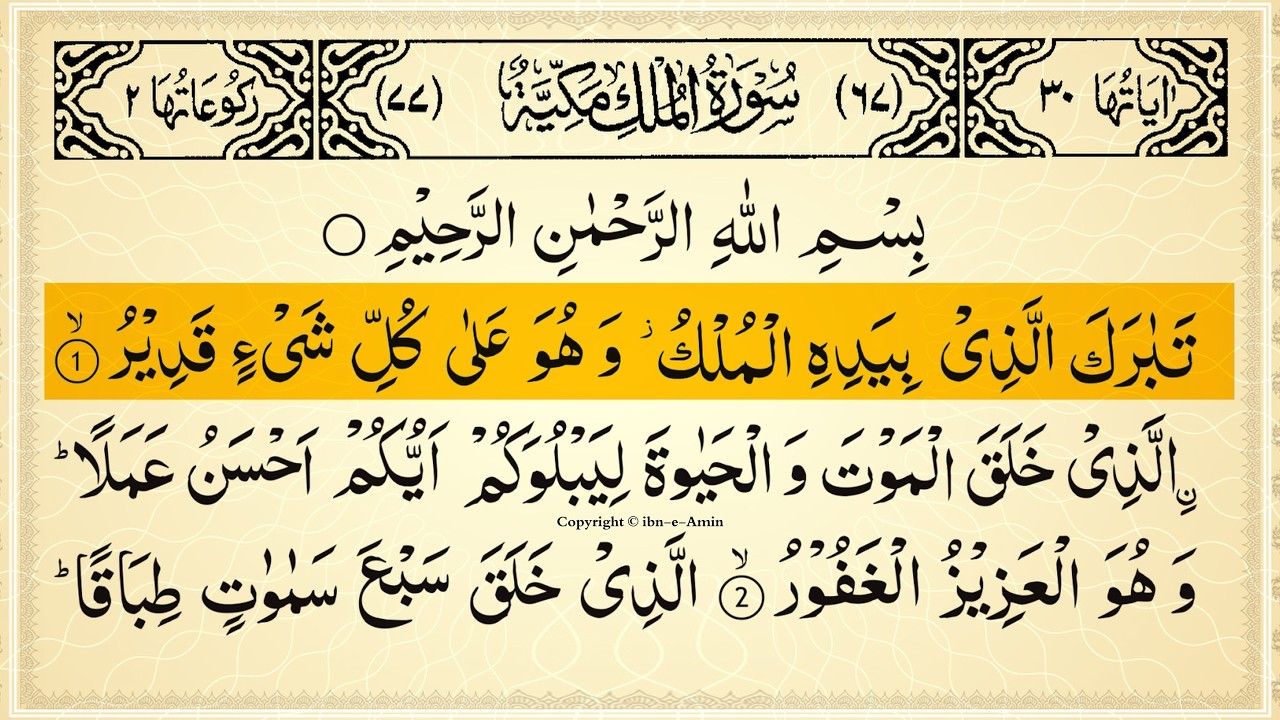 اٰیَاتُهَا ٣٠ (٦٧) سُوْرَةُ الْمُلْكِ مَكِّیَّةٌ (٧٧) رُكُوْعَاتُهَا ٢
بِسْمِ اللّٰهِ الرَّحْمٰنِ الرَّحِیْمِ ○
تَبٰرَكَ الَّذِیْ بِیَدِهِ الْمُلْكُ ؗ وَ هُوَ عَلٰی كُلِّ شَیْءٍ قَدِیْرُ ۙ ①
ِ۟نِ الَّذِیْ خَلَقَ الْمَوْتَ وَ الْحَیٰوةَ لِیَبْلُوَكُمْ اَیُّكُمْ اَحْسَنُ عَمَلًا ؕ
Copyright © ibn-e-Amin
وَ هُوَ الْعَزِیْزُ الْغَفُوْرُ ۙ ② الَّذِیْ خَلَقَ سَبْعَ سَمٰوٰتٍ طِبَاقًا ؕ